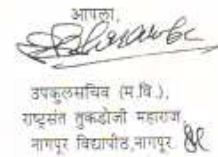 आपला,
उपकुलसचिव (म.वि.),
राष्ट्रसंत तुकडोजी महाराज
नागपूर विद्यापीठ,नागपूर